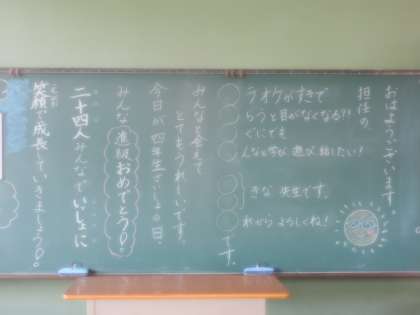 おはようございます。
担任の、
◯◯◯◯◯◯です。
◯ラオケがすきで
◯らうと目がなくなる!?
◯ぐにでも
◯んなと学び 遊び 話したい!
◯◯
◯きな 先生です。
◯れから よろしくね!
みんなと会えて
とてもうれしいです。
今日が四年生でいしょの日。
みんな進級おめでとう!
二十四人みんなでいっしょに
笑顔で成長していきましょう!